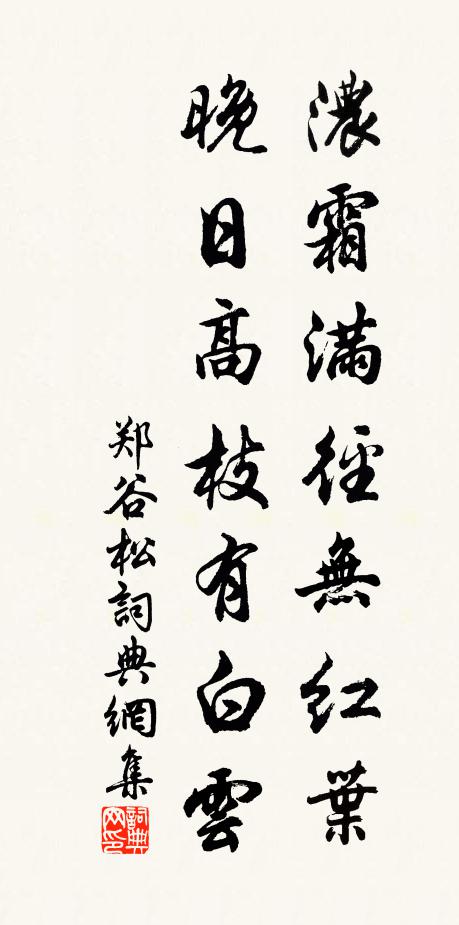 濃霜滿徑無紅葉
晚日高枝有白雲
郑谷松詞典網集
詞典网印